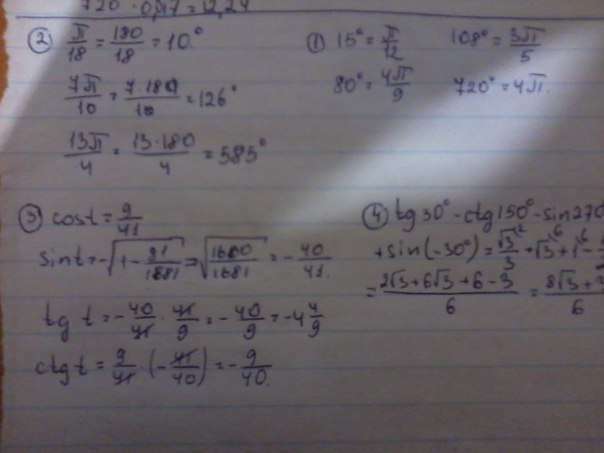 720 · 0,17 = 12,24
② π/18 = 180/18 = 10°
7π/10 = 7·180/10 = 126°
13π/4 = 13·180/4 = 585°
① 15° = π/12 108° = 3π/5
80° = 4π/9 720° = 4π.
③ cost = 9/41
sint = -√(1 - 81/1681) = √(1600/1681) = - 40/41.
tg t = - 40/41 · 41/9 = - 40/9 = -4 4/9
ctg t = 9/41 · (- 41/40) = - 9/40.
④ tg30° - ctg150° - sin270
+ sin(-30°) = √3/3 + √3 + 1 -
= 2√3+6√3+6-3/6 = 8√3+ /6